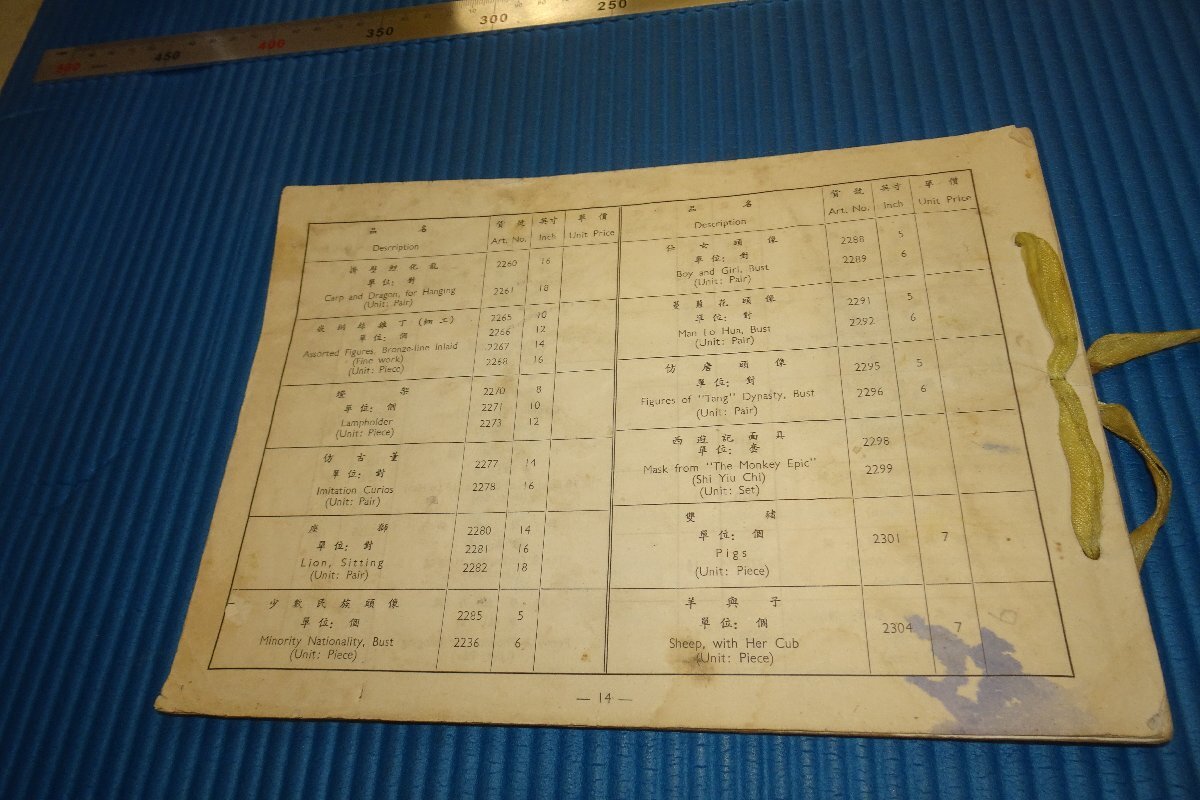 500
450
400
350
300
250
品 名
Description
貨 號
Art. No.
英寸
Inch
單 價
Unit Price
單 位: 對
Carp and Dragon, for Hanging
(Unit: Pair)
2260 16
2261 18
單 位: 個
Assorted Figures, Bronze-line Inlaid
(Fine work)
(Unit: Piece)
2265 10
2266 12
2267 14
2268 16
燈 架
單 位: 個
Lampholder
(Unit: Piece)
2270 8
2271 10
2273 12
仿 古 董
單 位: 對
Imitation Curios
(Unit: Pair)
2277 14
2278 16
座 獅
單 位: 對
Lion, Sitting
(Unit: Pair)
2280 14
2281 16
2282 18
少 數 民 族 頭 像
單 位: 個
Minority Nationality, Bust
(Unit: Piece)
2285 5
2236 6
品 名
Description
貨 號
Art. No.
英寸
Inch
單 價
Unit Price
仕 女 頭 像
單 位: 對
Boy and Girl, Bust
(Unit: Pair)
2288 5
2289 6
花 頭 像
單 位: 對
Man Lo Hua, Bust
(Unit: Pair)
2291 5
2292 6
仿 唐 頭 像
單 位: 對
Figures of "Tang" Dypasty, Bust
(Unit: Pair)
2295 5
2296 6
西 遊 記 面 具
單 位: 套
Mask from "The Monkey Epic"
(Shi Yiu Chi)
(Unit: Set)
2298
2299
雙 豬
單 位: 個
Pigs
(Unit: Piece)
2301 7
羊 與 子
單 位: 個
Sheep, with Her Cub
(Unit: Piece)
2304 7
— 14 —